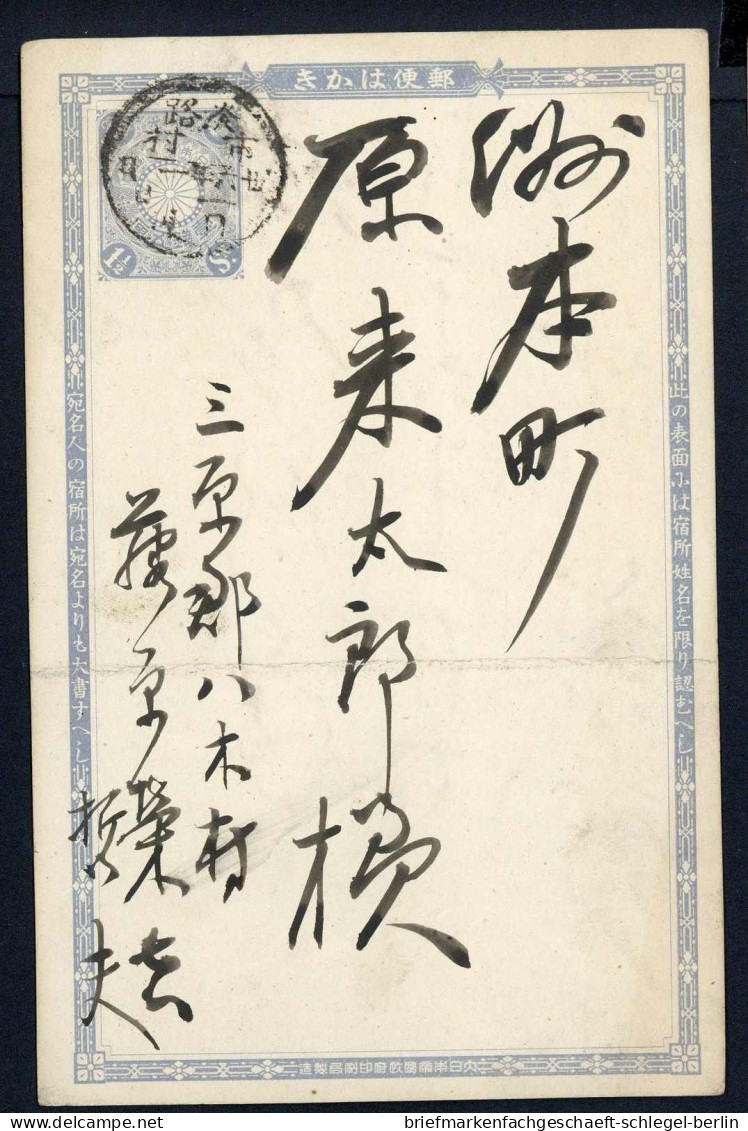 郵便はかき
此の表面には宿所姓名を限り認むへし
洲本町
原来太郎様
三原郡八木村
藤原榮吉
哲夫
宛名人の宿所は宛名よりも大書すへし
1½ S.
大日本帝國政府印刷局製造
briefmarkenfachgeschaeft-schlegel-berlin